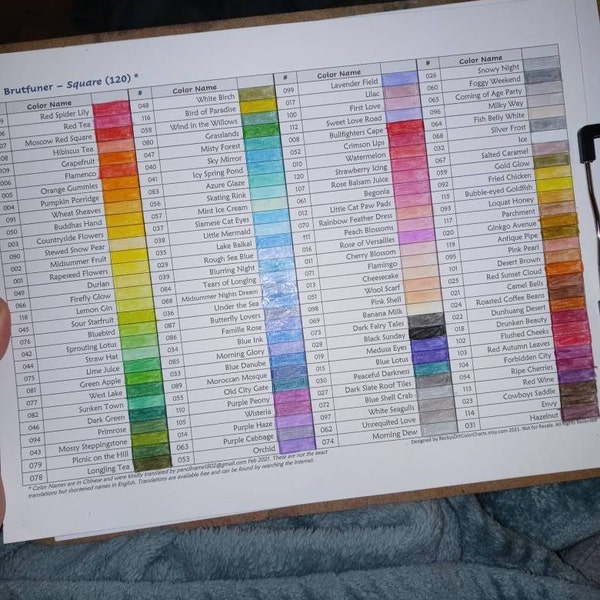 Brutfuner – Square (120) *
Color Name
Red Spider Lily
Red Tea
Moscow Red Square
Hibiscus Tea
Grapefruit
Flamenco
006 Orange Gummies
005 Pumpkin Porridge
004 Wheat Sheaves
091 Buddhas Hand
050 Countryside Flowers
003 Stewed Snow Pear
090 Midsummer Fruit
002 Rapeseed Flowers
001 Durian
049 Firefly Glow
066 Lemon Gin
116 Sour Starfruit
045 Bluebird
076 Sprouting Lotus
042 Straw Hat
044 Lime Juice
075 Green Apple
081 West Lake
077 Sunken Town
082 Dark Green
046 Primrose
094 Mossy Steppingstone
043 Picnic on the Hill
079 Longjing Tea
078
# Color Name
048 White Birch
116 Bird of Paradise
058 Wind in the Willows
080 Grasslands
047 Misty Forest
040 Sky Mirror
041 Icy Spring Pond
Azure Glaze
Skating Rink
Mint Ice Cream
Siamese Cat Eyes
Little Mermaid
Lake Baikal
Rough Sea Blue
Blurring Night
Tears of Longing
Midsummer Nights Dream
Under the Sea
Butterfly Lovers
Famille Rose
Blue Ink
Morning Glory
Blue Danube
Moroccan Mosque
Old City Gate
Purple Peony
Wisteria
Purple Haze
Purple Cabbage
Orchid
053
# Color Name
099 Lavender Field
017 Lilac
100 First Love
112 Sweet Love Road
008 Bullfighters Cape
058 Crimson Lips
032 Watermelon
120 Strawberry Icing
107 Rose Balsam Juice
061 Begonia
012 Little Cat Paw Pads
070 Rainbow Feather Dress
111 Peach Blossoms
016 Rose of Versailles
011 Cherry Blossom
Flamingo
013 Cheesecake
051 Wool Scarf
059 Pink Shell
098 Banana Milk
069 Dark Fairy Tales
073 Black Sunday
028 Medusa Eyes
030 Blue Lotus
015 Peaceful Darkness
027 Dark Slate Roof Tiles
030 Blue Shell Crab
072 White Seagulls
062 Unrequited Love
074 Morning Dew
# Color Name
026 Snowy Night
060 Foggy Weekend
065 Coming of Age Party
096 Milky Way
064 Fish Belly White
068 Silver Frost
Ice
032 Salted Caramel
Gold Glow
092 Fried Chicken
115 Bubble-eyed Goldfish
093 Loquat Honey
117 Parchment
020 Ginkgo Avenue
119 Antique Pipe
095 Pink Pearl
101 Desert Brown
025 Red Sunset Cloud
021 Camel Bells
024 Roasted Coffee Beans
022 Dunhuang Desert
018 Drunken Beauty
103 Flushed Cheeks
102 Red Autumn Leaves
104 Forbidden City
054 Ripe Cherries
113 Red Wine
023 Cowboys Saddle
114 Envy
031 Hazelnut
* Color Names are in Chinese and were kindly translated by pencilframe1902@gmail.com Feb 2021. These are not the exact
translations but shortened names in English. Translations are available free and can be found by searching the Internet.
Designed by BeckysDIYColorCharts.etsy.com. 2021. Not for Resale. All Rights Reserved